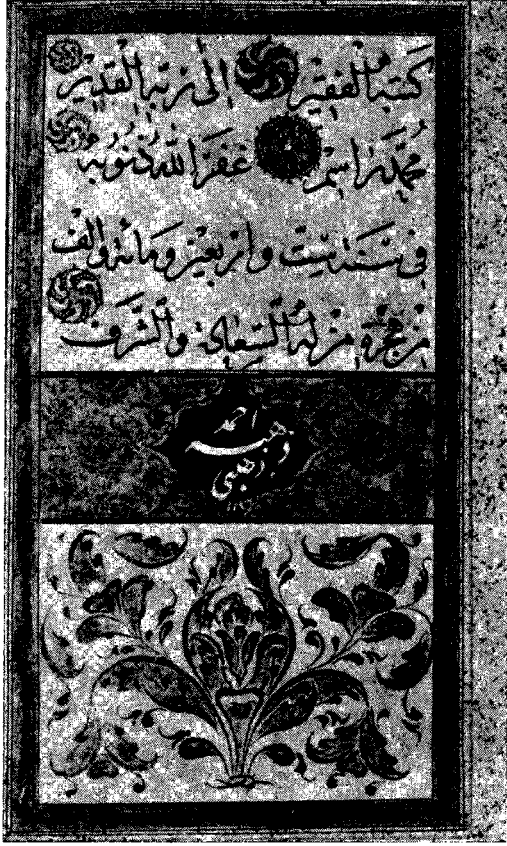 كَتَبَهُ الْفَقِيرُ إِلَى رَبِّهِ الْقَدِيرِ
مُحَمَّد رَاسِمْ غَفَرَ اللهُ ذُنُوبَهُ
فِي سَنَةِ سِتّ وَأَرْبَعِينَ وَمِائَة وَأَلْف
مِنْ هِجْرَةِ مَنْ لَهُ السَّعَادَة وَالشَّرَفْ
احمد
ذهبه